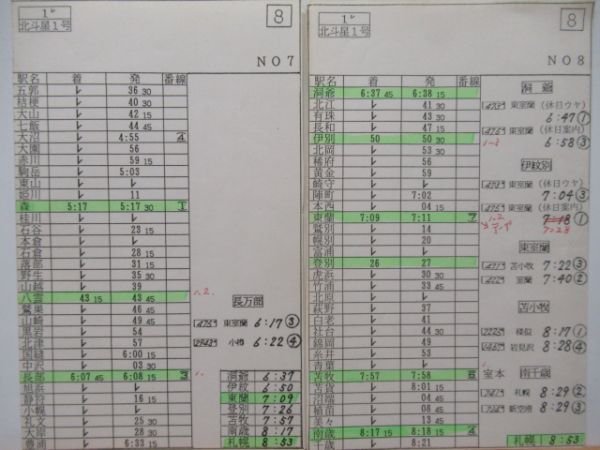 1レ
北斗星1号
8
NO7
駅名 着 発 番線
五郭 レ 36 30
桔梗 レ 40 30
大山 レ 42 15
七飯 レ 44 45
大沼 レ 4:55 4
大園 レ 56
赤川 レ 59 15
駒岳 レ 5:03
東山 レ レ
姫川 レ 11
森 5:17 5:17 30 1
桂川 レ レ
石谷 レ 23 15
本倉 レ レ
石倉 レ 28 15
落部 レ 31 15
野生 レ 35 30
山越 レ 39
八雲 43 15 43 45
鷲巣 レ 46 45
山崎 レ 49 45
黒岩 レ 54
北津 レ 57
国縫 レ 6:00 15
中沢 レ 03 30
長部 6:07 45 6:08 15 3
旭浜 レ レ
静狩 レ 16 15
小幌 レ レ
礼文 レ 25 30
大岸 レ 28 30
豊浦 レ 6:33 15
長万部
東室蘭 6:17③
小樽 6:22④
洞爺 6:37
伊紋 6:50
東蘭 7:09
登別 7:26
苫牧 7:57
南歳 8:17
札幌 8:53
1レ
北斗星1号
8
NO8
駅名 着 発 番線
洞爺 6:37 45 6:38 15
北江 レ 41 30
有珠 レ 43 30
長和 レ 47 15
伊別 50 50 30
北岡 レ 53 30
稀府 レ 56
黄金 レ 59
崎守 レ レ
陣町 レ 7:02
本西 レ 04 15
東蘭 7:09 7:11 7
鷲別 レ 14
幌別 レ 20
富浦 レ レ
登別 26 27
虎浜 レ 30
竹浦 レ 33 45
北原 レ レ
萩野 レ 37
白老 レ 41
社台 レ 44 30
錦岡 レ 49
糸井 レ 53
青葉 レ レ
苫牧 7:57 7:58 5
苫貨 レ 8:01 15
沼端 レ 04 45
植苗 レ 08 45
美々 レ 13 15
南歳 8:17 15 8:18 15 4
千歳 レ 8:21
洞爺
東室蘭 (休日ウヤ)
6:47①
東室蘭 (休日案内)
6:58③
伊紋別
東室蘭 (休日ウヤ)
7:04③
東室蘭 (休日案内)
7:18①
7:28
東室蘭
苫小牧 7:22③
室蘭 7:40②
苫小牧
様似 8:17①
岩見沢 8:28④
室本 南千歳
札幌 8:29②
新空港 8:29③
札幌 8:53